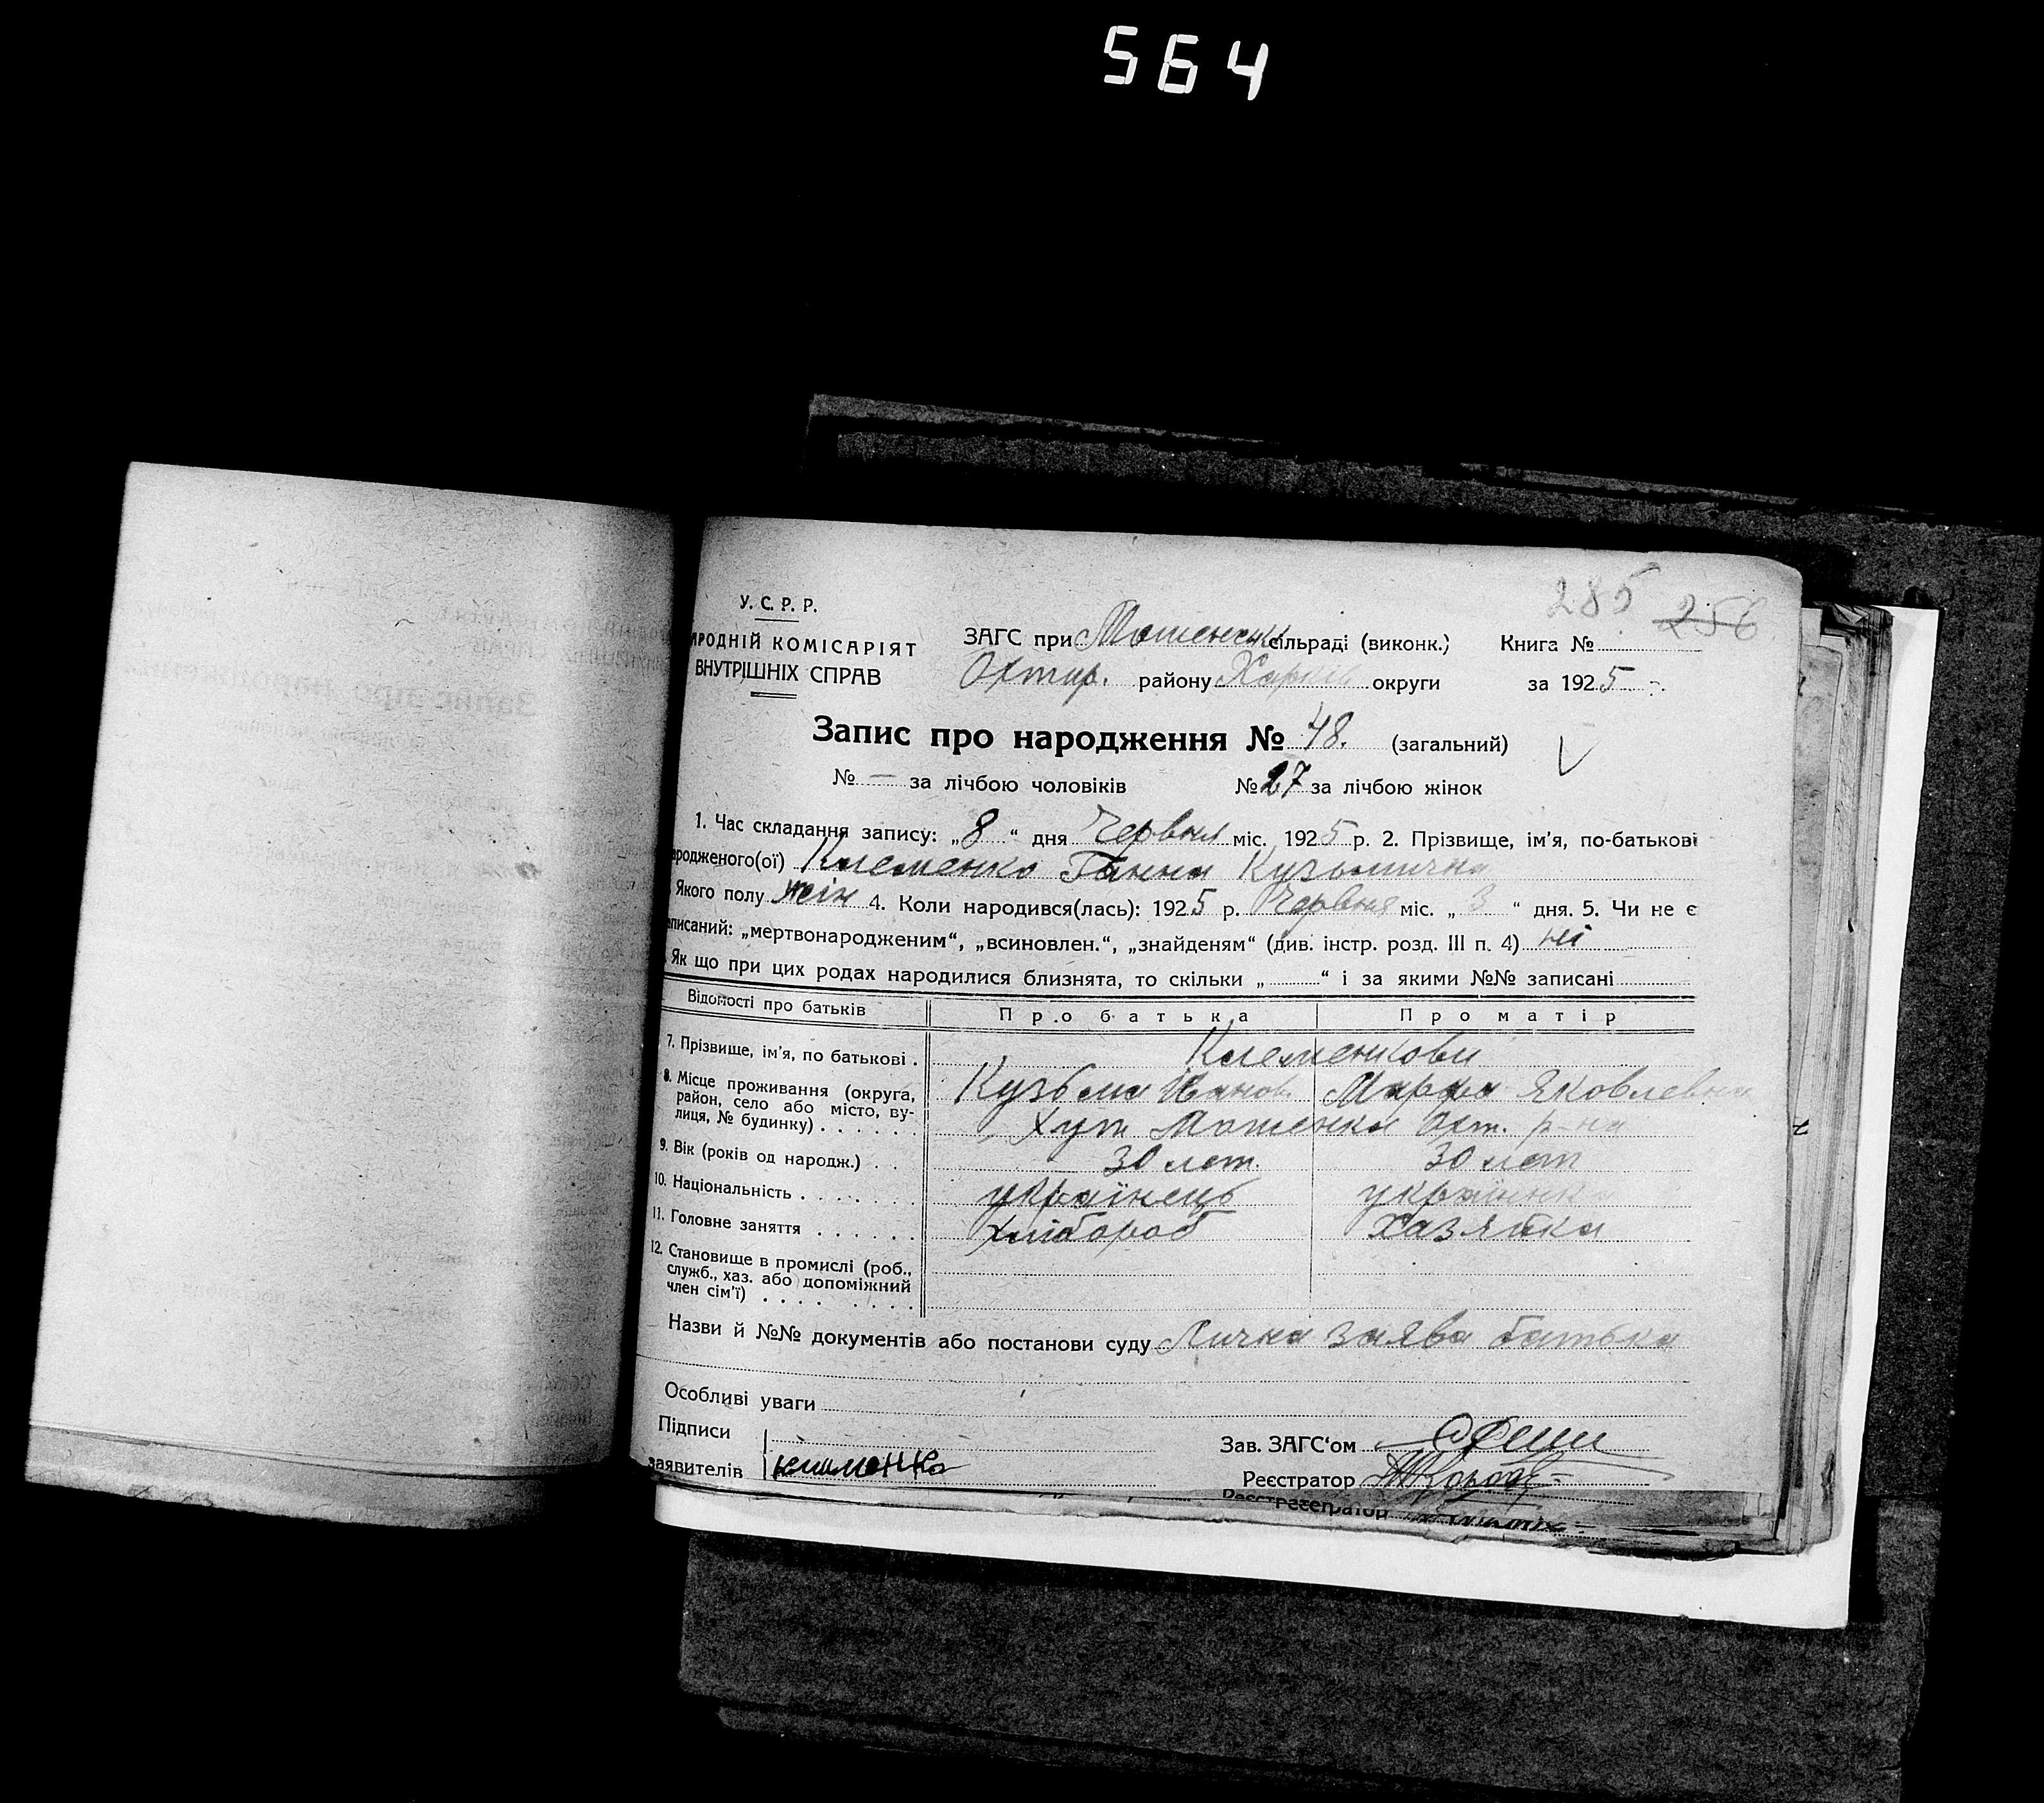 564
285 256
У. С. Р. Р.
РОДНІЙ КОМІСАРІЯТ
ВНУТРІШНІХ СПРАВ
ЗАГС при сільраді (виконк.) Книга №
Охтир. району Харків округи за 1925
Запис про народження № 48. (загальний)
№ — за лічбою чоловіків № 27 за лічбою жінок
1. Час складання запису: „8“ дня Червня міс. 1925 р. 2. Прізвище, ім'я, по-батькові
ародженого(ої) Клеменко Ганна Кузьмична
Якого полу жін 4. Коли народився(лась): 1925 р. Червня міс. „3“ дня. 5. Чи не є
писаний: „мертвонародженим“, „всиновлен.“, „знайденям“ (див. інстр. розд. III п. 4) ні
Як що при цих родах народилися близнята, то скільки „ “ і за якими №№ записані
Відомості про батьків Про батька Про матір
7. Прізвище, ім'я, по батькові . Клеменкови
Кузьма Іванов. Марфа Яковлевна
8. Місце проживання (округа, район, село або місто, вулиця, № будинку) . . . . . . Хут Мошенки Охт. р-на
9. Вік (років од народж.) . . 30 лет. 30 лет
10. Національність . . . . . . . українець українка
11. Головне заняття . . . . . . хлібороб хазяйка
12. Становище в промислі (роб., служб., хаз. або допоміжний член сім'ї) . . . . . . . .
Назви й №№ документів або постанови суду Лична заява батька
Особливі уваги
Підписи
Зав. ЗАГС'ом
заявителів клименко
Реєстратор